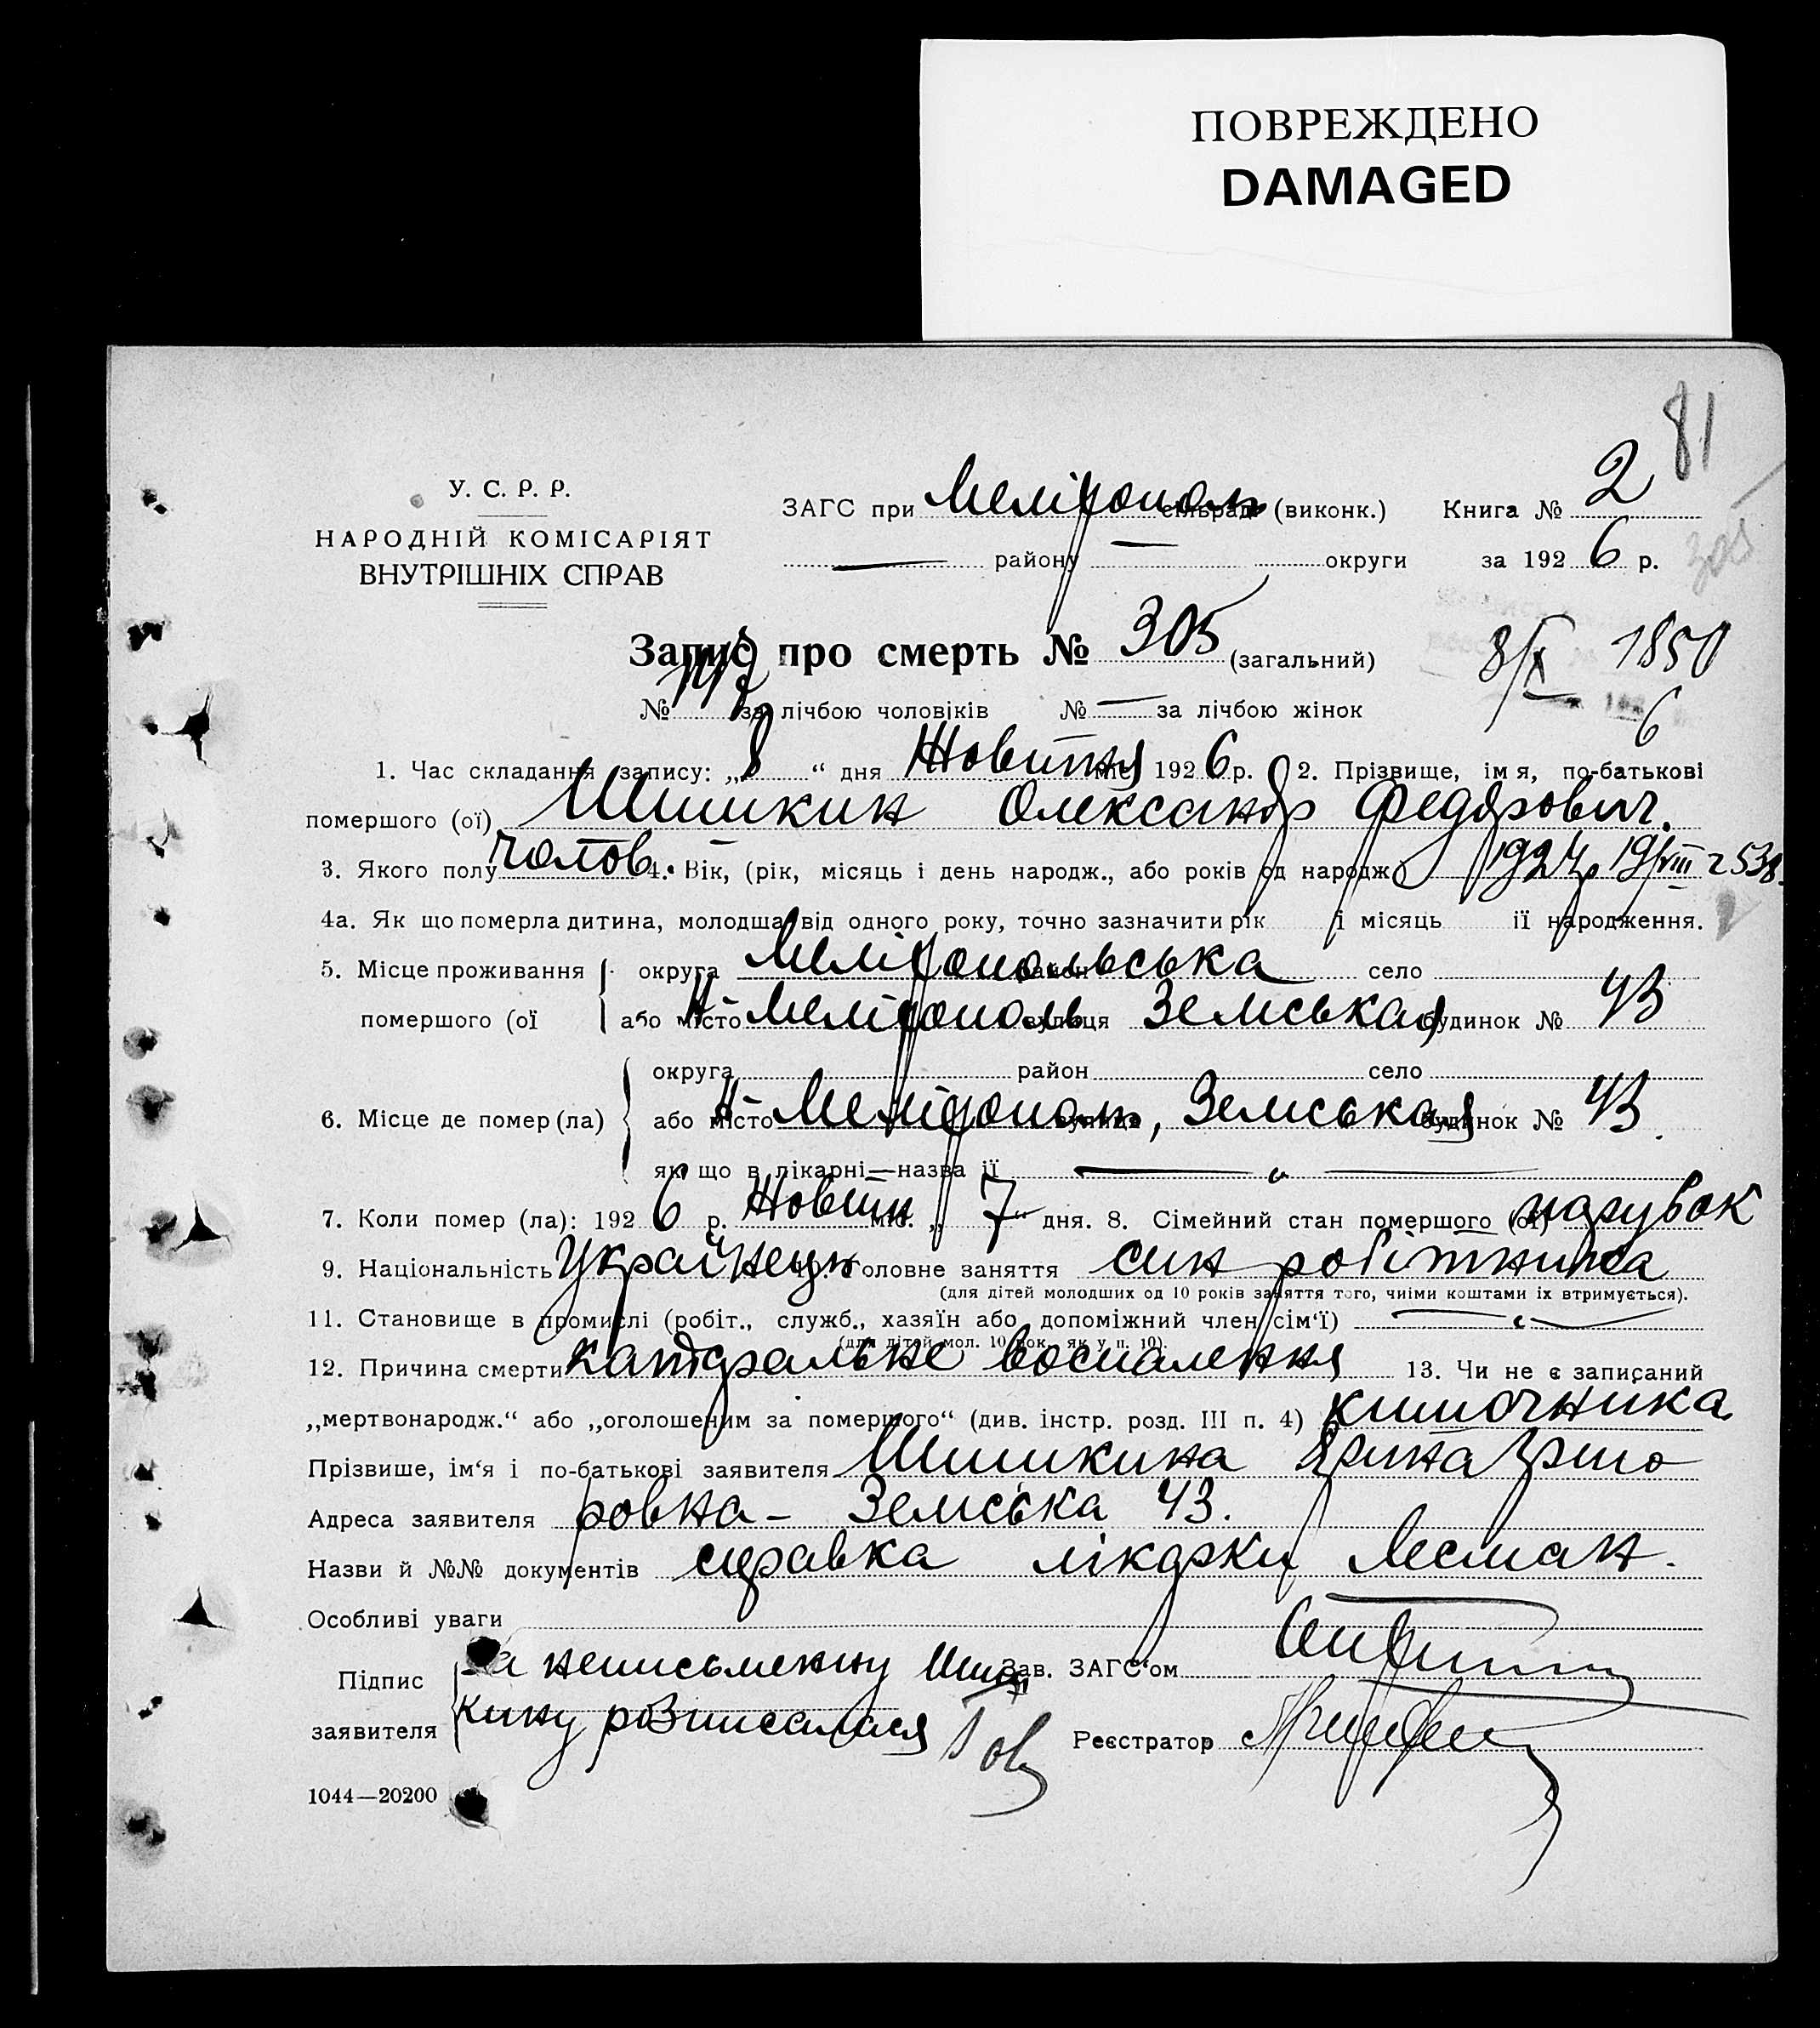 ПОВРЕЖДЕНО
DAMAGED
81
У. С. Р. Р.
НАРОДНІЙ КОМІСАРІЯТ
ВНУТРІШНІХ СПРАВ
ЗАГС при Мелітополь сільраді (виконк.) Книга № 2
— району — округи за 1926 р.
305
Запис про смерть № 305 (загальний)
8/X 1850
6
№ за лічбою чоловіків № — за лічбою жінок
1. Час складання запису: „8“ дня Жовтня міс. 1926 р. 2. Прізвище, імя, по-батькові
помершого (ої) Шишкин Олександр Федорович.
3. Якого полу чолов. 4. Вік, (рік, місяць і день народж., або років од народж.) 1924р 19/VIII
4а. Як що померла дитина, молодша від одного року, точно зазначити рік і місяць її народження.
5. Місце проживання округа Мелітопольська район село
помершого (ої або місто М- Мелітополь вулиця Земськая будинок № 43
округа район село
6. Місце де помер (ла) або місто М- Мелітополь, вулиця Земськая будинок № 43.
як що в лікарні—назва її — „ —
7. Коли помер (ла): 1926 р. Жовтн міс. „7“ дня. 8. Сімейний стан помершого (ої) парубок
9. Національність Українець 10. Головне заняття син робітника
(для дітей молодших од 10 років заняття того, чиїми коштами їх втримується).
11. Становище в промислі (робіт., служб., хазяїн або допоміжний член сім‘ї) — „ —
(для дітей мол. 10 рок. як у п. 10).
12. Причина смерти катаральне воспалення 13. Чи не є записаний
„мертвонародж.“ або „оголошеним за помершого“ (див. інстр. розд. III п. 4) кишочника
Прізвише, ім‘я і по-батькові заявителя Шишкина Ярина Григо
Адреса заявителя ровна - Земська 43.
Назви й №№ документів справка лікарки Лесман.
Особливі уваги
Підпис за неписьменну Шиш Зав. ЗАГС‘ом
заявителя кину розписалася Реєстратор
1044—20200